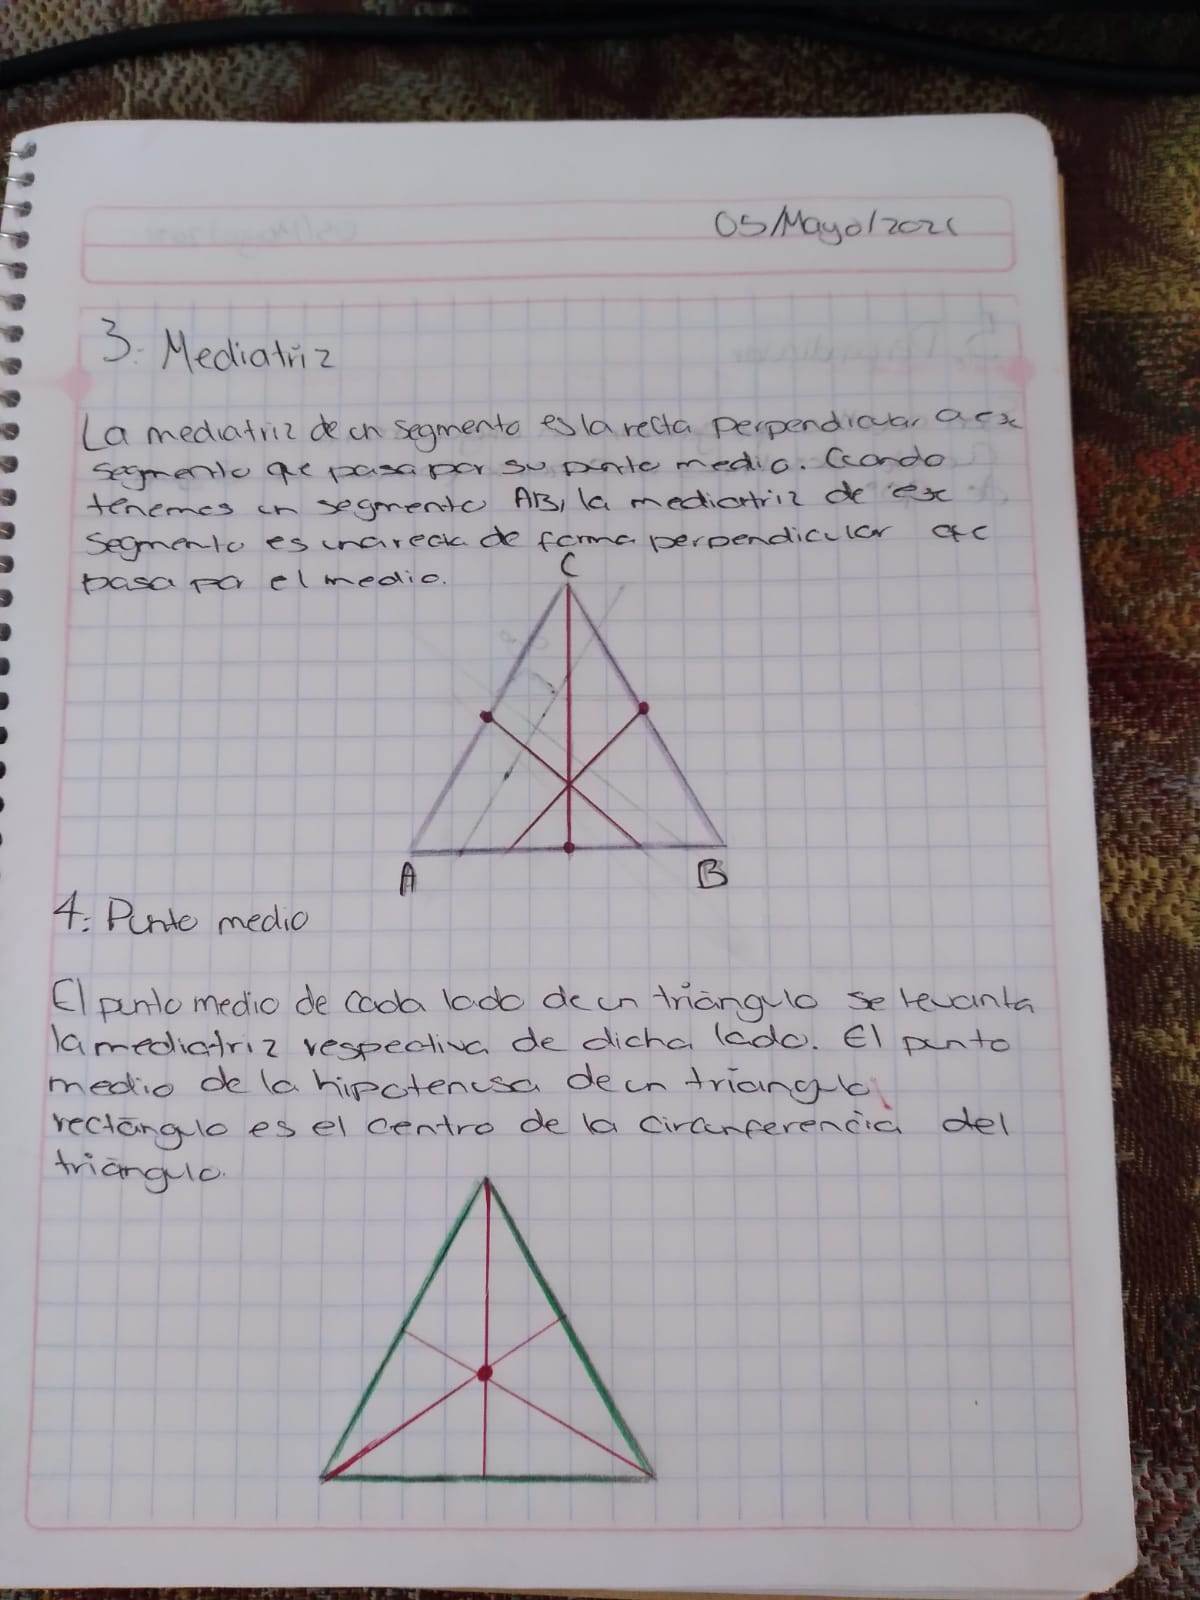 05/Mayo/2021
3. Mediatriz
La mediatriz de un segmento es la recta perpendicular a ese
segmento que pasa por su punto medio. Cuando
tenemos un segmento AB, la mediatriz de ese
segmento es una recta de forma perpendicular que
pasa por el medio.
C
A B
4. Punto medio
El punto medio de cada lado de un triángulo se levanta
la mediatriz respectiva de dicha lado. El punto
medio de la hipotenusa de un triangulo
rectángulo es el centro de la circunferencia del
triángulo.